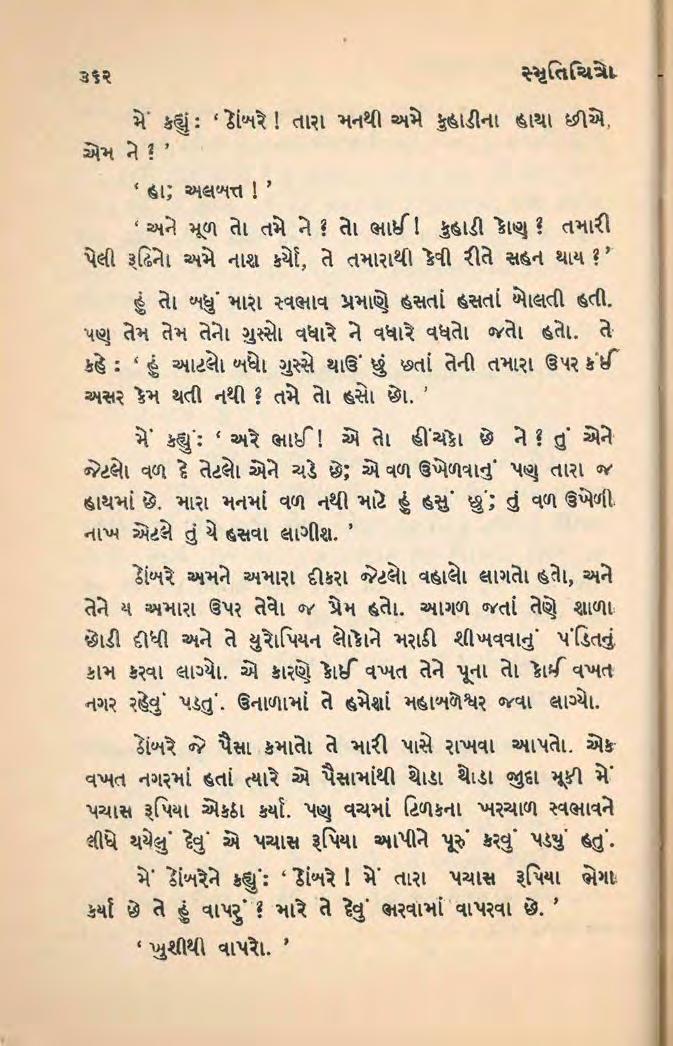 ૩૬૨ સ્મૃતિચિત્રો
મેં કહ્યું : ‘ ઠોંબરે ! તારા મનથી અમે કુહાડીના હાથા છીએ,
એમ ને ? ’
‘ હા; અલબત્ત ! ’
‘ અને મૂળ તો તમે ને ? તો ભાઈ ! કુહાડી કોણ ? તમારી
પેલી રૂઢિનો અમે નાશ કર્યો, તે તમારાથી કેવી રીતે સહન થાય ? ’
હું તો બધું મારા સ્વભાવ પ્રમાણે હસતાં હસતાં બોલતી હતી.
પણ તેમ તેમ તેનો ગુસ્સો વધારે ને વધારે વધતો જતો હતો. તે
કહે : ‘ હું આટલો બધો ગુસ્સે થાઉં છું છતાં તેની તમારા ઉપર કંઈ
અસર કેમ થતી નથી ? તમે તો હસો છો. ’
મેં કહ્યું : ‘ અરે ભાઈ ! એ તો હીંચકો છે ને ? તું એને
જેટલો વળ દે તેટલો એને ચડે છે; એ વળ ઉખેળવાનું પણ તારા જ
હાથમાં છે. મારા મનમાં વળ નથી માટે હું હસું છું; તું વળ ઉખેળી
નાખ એટલે તું યે હસવા લાગીશ. ’
ઠોંબરે અમને અમારા દીકરા જેટલો વહાલો લાગતો હતો, અને
તેને ય અમારા ઉપર તેવો જ પ્રેમ હતો. આગળ જતાં તેણે શાળા
છોડી દીધી અને તે યુરોપિયન લોકોને મરાઠી શીખવવાનું પંડિતનું
કામ કરવા લાગ્યો. એ કારણે કોઈ વખત તેને પૂના તો કોઈ વખત
નગર રહેવું પડતું. ઉનાળામાં તે હમેશાં મહાબળેશ્વર જવા લાગ્યો.
ઠોંબરે જે પૈસા કમાતો તે મારી પાસે રાખવા આપતો. એક
વખત નગરમાં હતાં ત્યારે એ પૈસામાંથી થોડા થોડા જુદા મૂકી મેં
પચાસ રૂપિયા એકઠા કર્યા. પણ વચમાં ટિળકના ખરચાળ સ્વભાવને
લીધે થયેલું દેવું એ પચાસ રૂપિયા આપીને પૂરું કરવું પડયું હતું.
મેં ઠોંબરેને કહ્યું : ‘ ઠોંબરે ! મેં તારા પચાસ રૂપિયા ભેગા
કર્યા છે તે હું વાપરું ? મારે તે દેવું ભરવામાં વાપરવા છે. ’
‘ ખુશીથી વાપરો. ’